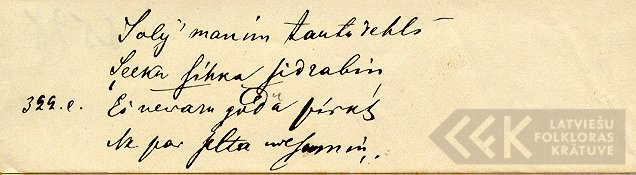 Solij' manim tautu dehls
Seeku sihka sidrabiņ
322. e. Es nevaru goda pirkt
Ne par selta wesumiņ.
LATVIEŠU
FOLKLORAS
KRĀTUVE